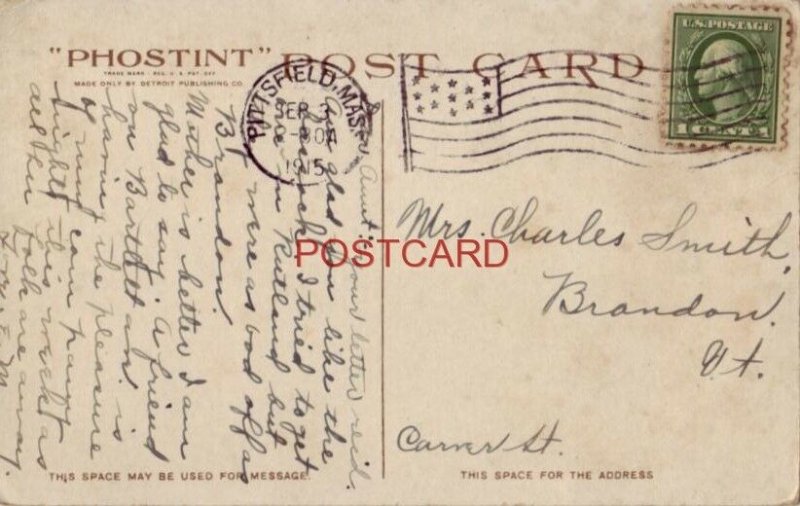 "PHOSTINT" POST CARD
TRADE MARK - REG. U.S. PAT. OFF.
MADE ONLY BY DETROIT PUBLISHING CO.
PITTSFIELD, MASS.
SEP
1915
U.S. POSTAGE
1 CENT 1
Dear Aunt: Your letter rec'd.
glad you like the
I tried to get
one in Rutland but
they were as bad off as
Brandon.
Mother is better I am
glad to say. A friend
on Bartlett Ave. is
having the pleasure
of my
this week as
all her folk are away.
Mrs. Charles Smith,
Brandon.
Vt.
Carver St.
POSTCARD
THIS SPACE MAY BE USED FOR MESSAGE.
THIS SPACE FOR THE ADDRESS